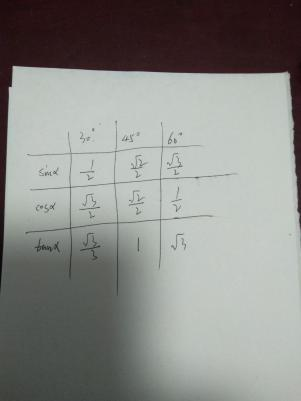 30° 45° 60°
sinα 1/2 √2/2 √3/2
cosα √3/2 √2/2 1/2
tanα √3/3 1 √3